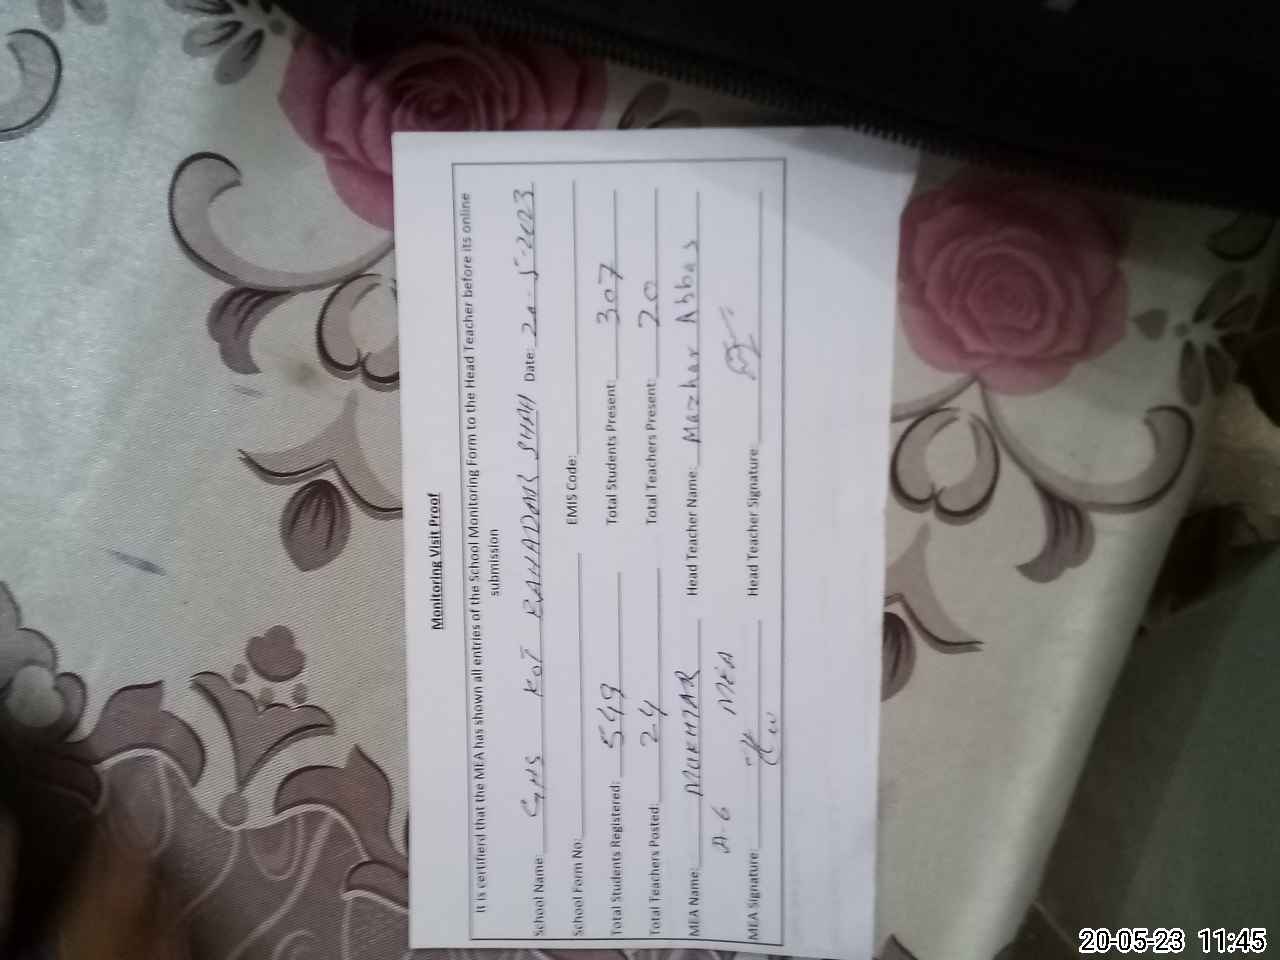 Monitoring Visit Proof
It is certifierd that the MEA has shown all entries of the School Monitoring Form to the Head Teacher before its online
submission
School Name: GHS KOT BAHADAR SHAH Date: 20-5-2023
School Form No: EMIS Code:
Total Students Registered: 549 Total Students Present: 307
Total Teachers Posted: 24 Total Teachers Present: 20
MEA Name: MUKHTAR Head Teacher Name: Mazhar Abbas
A-6 MEA
MEA Signature: Head Teacher Signature:
20-05-23 11:45